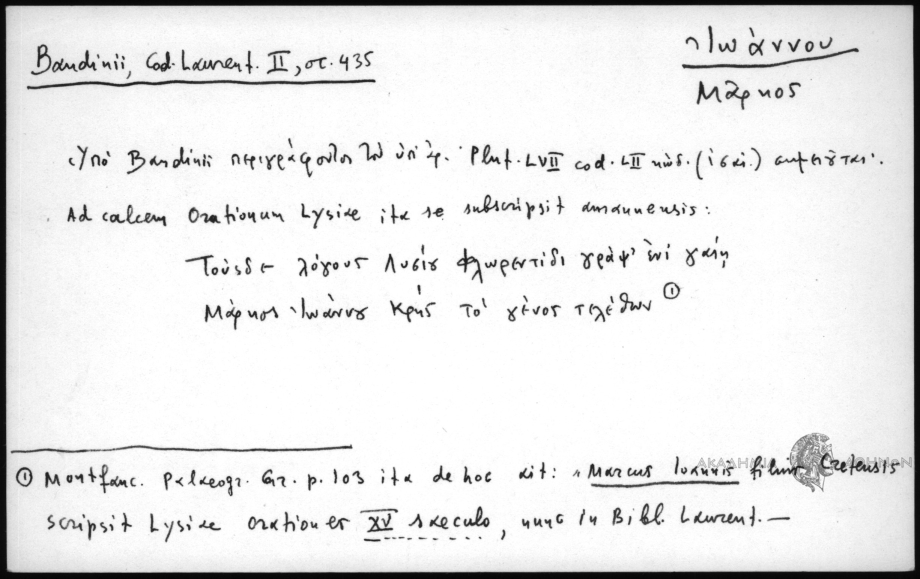 Bandinii, Cod. Laurent. II, στ. 435
Ἰωάννου
Μάρκος
Ὑπό Bandinii περιγράφοντος τὸν ὑπ' ἀρ. Plut. LVII cod. LII κώδ. σημειοῦται:
Ad calcem Orationum Lysiae ita se subscripsit amanuensis:
Τούσδε λόγους Λυσίου Φλωρεντίδι γράψ' ἐνί γαίῃ
Μάρκος Ἰωάννου Κρής τό γένος τελέθων ①
① Montfauc. Palaeogr. Gr. p. 103 ita de hoc ait: «Marcus Ioannis filius Cretensis
scripsit Lysiae orationes XV saeculo, nunc in Bibl. Laurent. —
ΑΚΑΔΗΜΙΑ ΑΘΗΝΩΝ